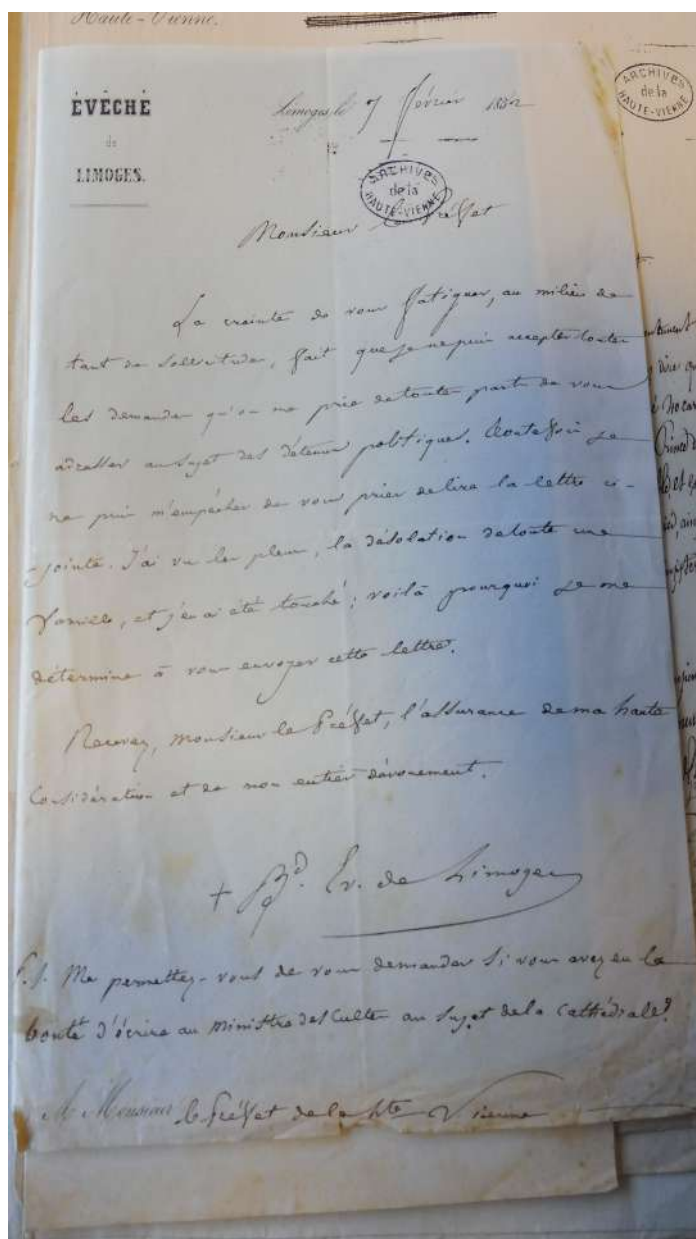 Haute-Vienne.
ÉVÊCHÉ
de
LIMOGES.
Limoges, le 7 février 1852
ARCHIVES
de la
HAUTE-VIENNE
ARCHIVES
de la
HAUTE-VIENNE
Monsieur le Préfet
La crainte de vous fatiguer, au milieu de
tant de sollicitudes, fait que je ne puis accepter toutes
les demandes qu'on me prie de toute part de vous
adresser au sujet des détenus politiques. Toutefois je
ne puis m'empêcher de vous prier de lire la lettre ci-
-jointe. J'ai vu les pleurs, la désolation de toute une
famille, et j'en ai été touché ; voilà pourquoi je me
détermine à vous envoyer cette lettre.
Recevez, Monsieur le Préfet, l'assurance de ma haute
considération et de mon entier dévouement.
+ Bd. Ev. de Limoges
P.S. Me permettez-vous de vous demander si vous avez eu la
bonté d'écrire au Ministre des Cultes au sujet de la Cathédrale ?
A Monsieur le Préfet de la Hte Vienne